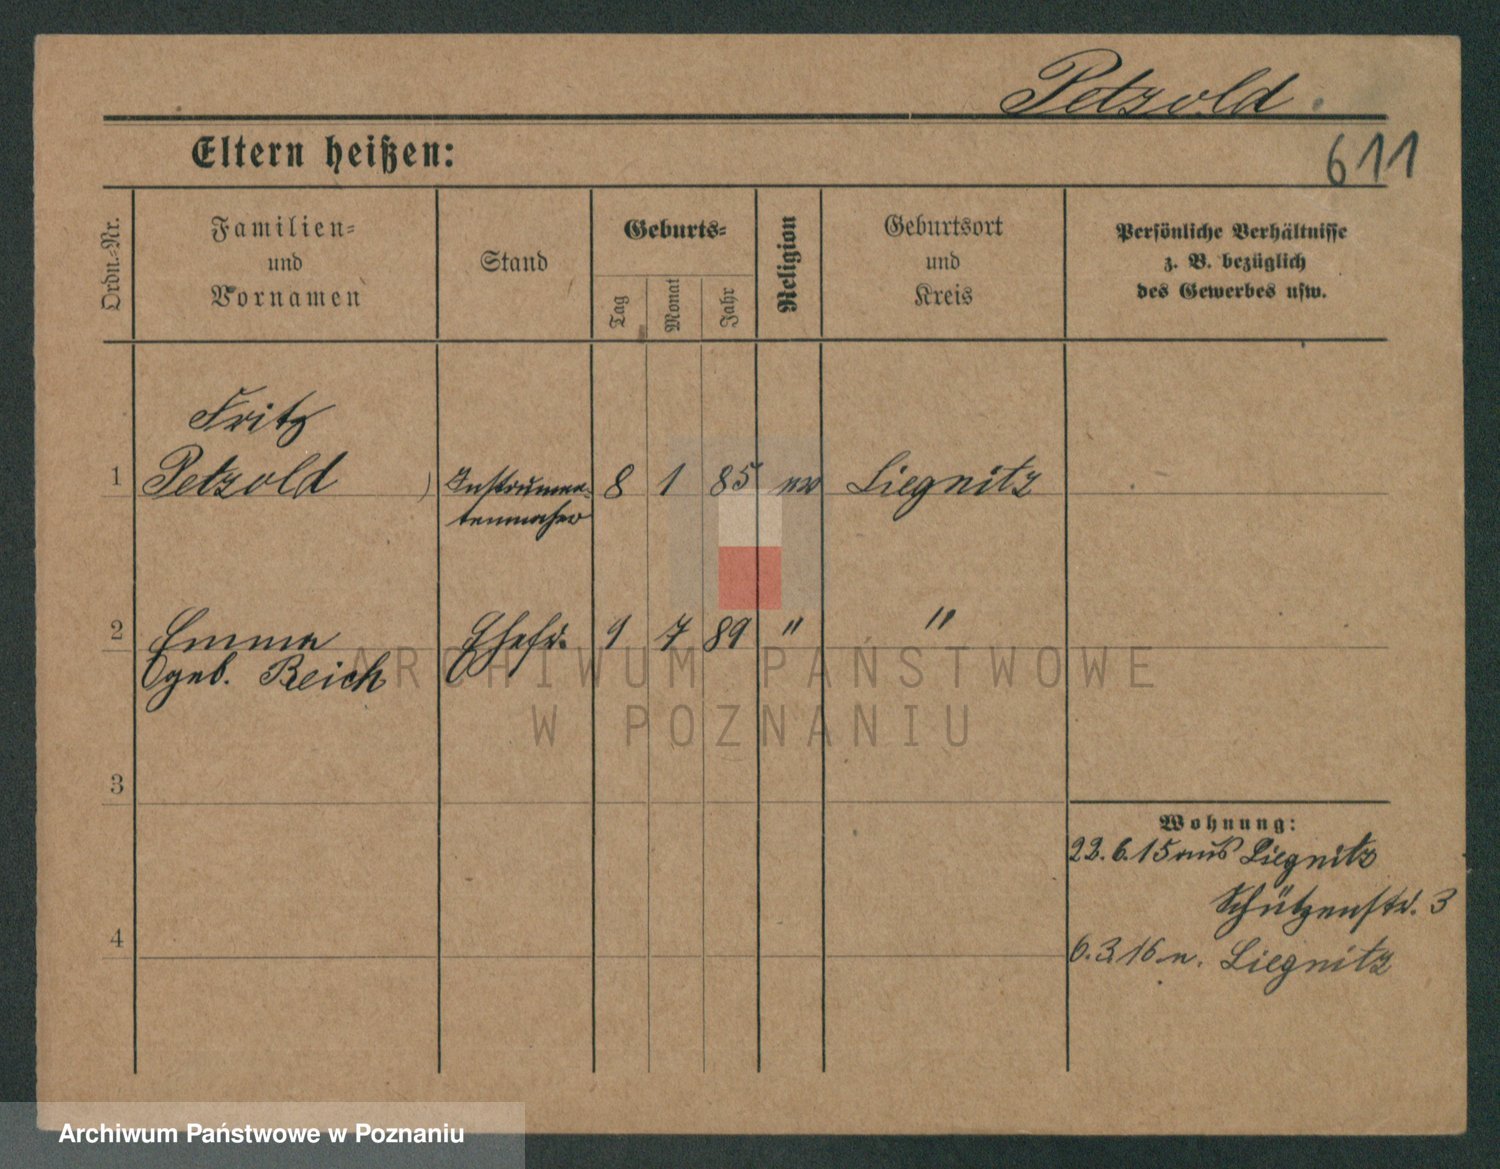 Petzold.
Eltern heißen:
611
Ordn.=Nr.
Familien=
und
Vornamen
Stand
Geburts=
Tag
Monat
Jahr
Religion
Geburtsort
und
Kreis
Persönliche Verhältnisse
z. B. bezüglich
des Gewerbes usw.
Fritz
1 Petzold Instrumen= 8 1 85 ev Liegnitz
tenmacher
2 Emma Ehefr. 9 7 89 " "
geb. Reich
ARCHIWUM PAŃSTWOWE
W POZNANIU
3
Wohnung:
22.6.15 aus Liegnitz
Schützenstr. 3
4
6.3.16 n. Liegnitz
Archiwum Państwowe w Poznaniu